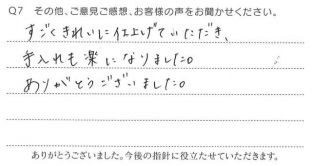 Q7 その他、ご意見ご感想、お客様の声をお聞かせください。
すごくきれいに仕上げていただき、
手入れも楽になりました。
ありがとうございました。
ありがとうございました。今後の指針に役立たせていただきます。